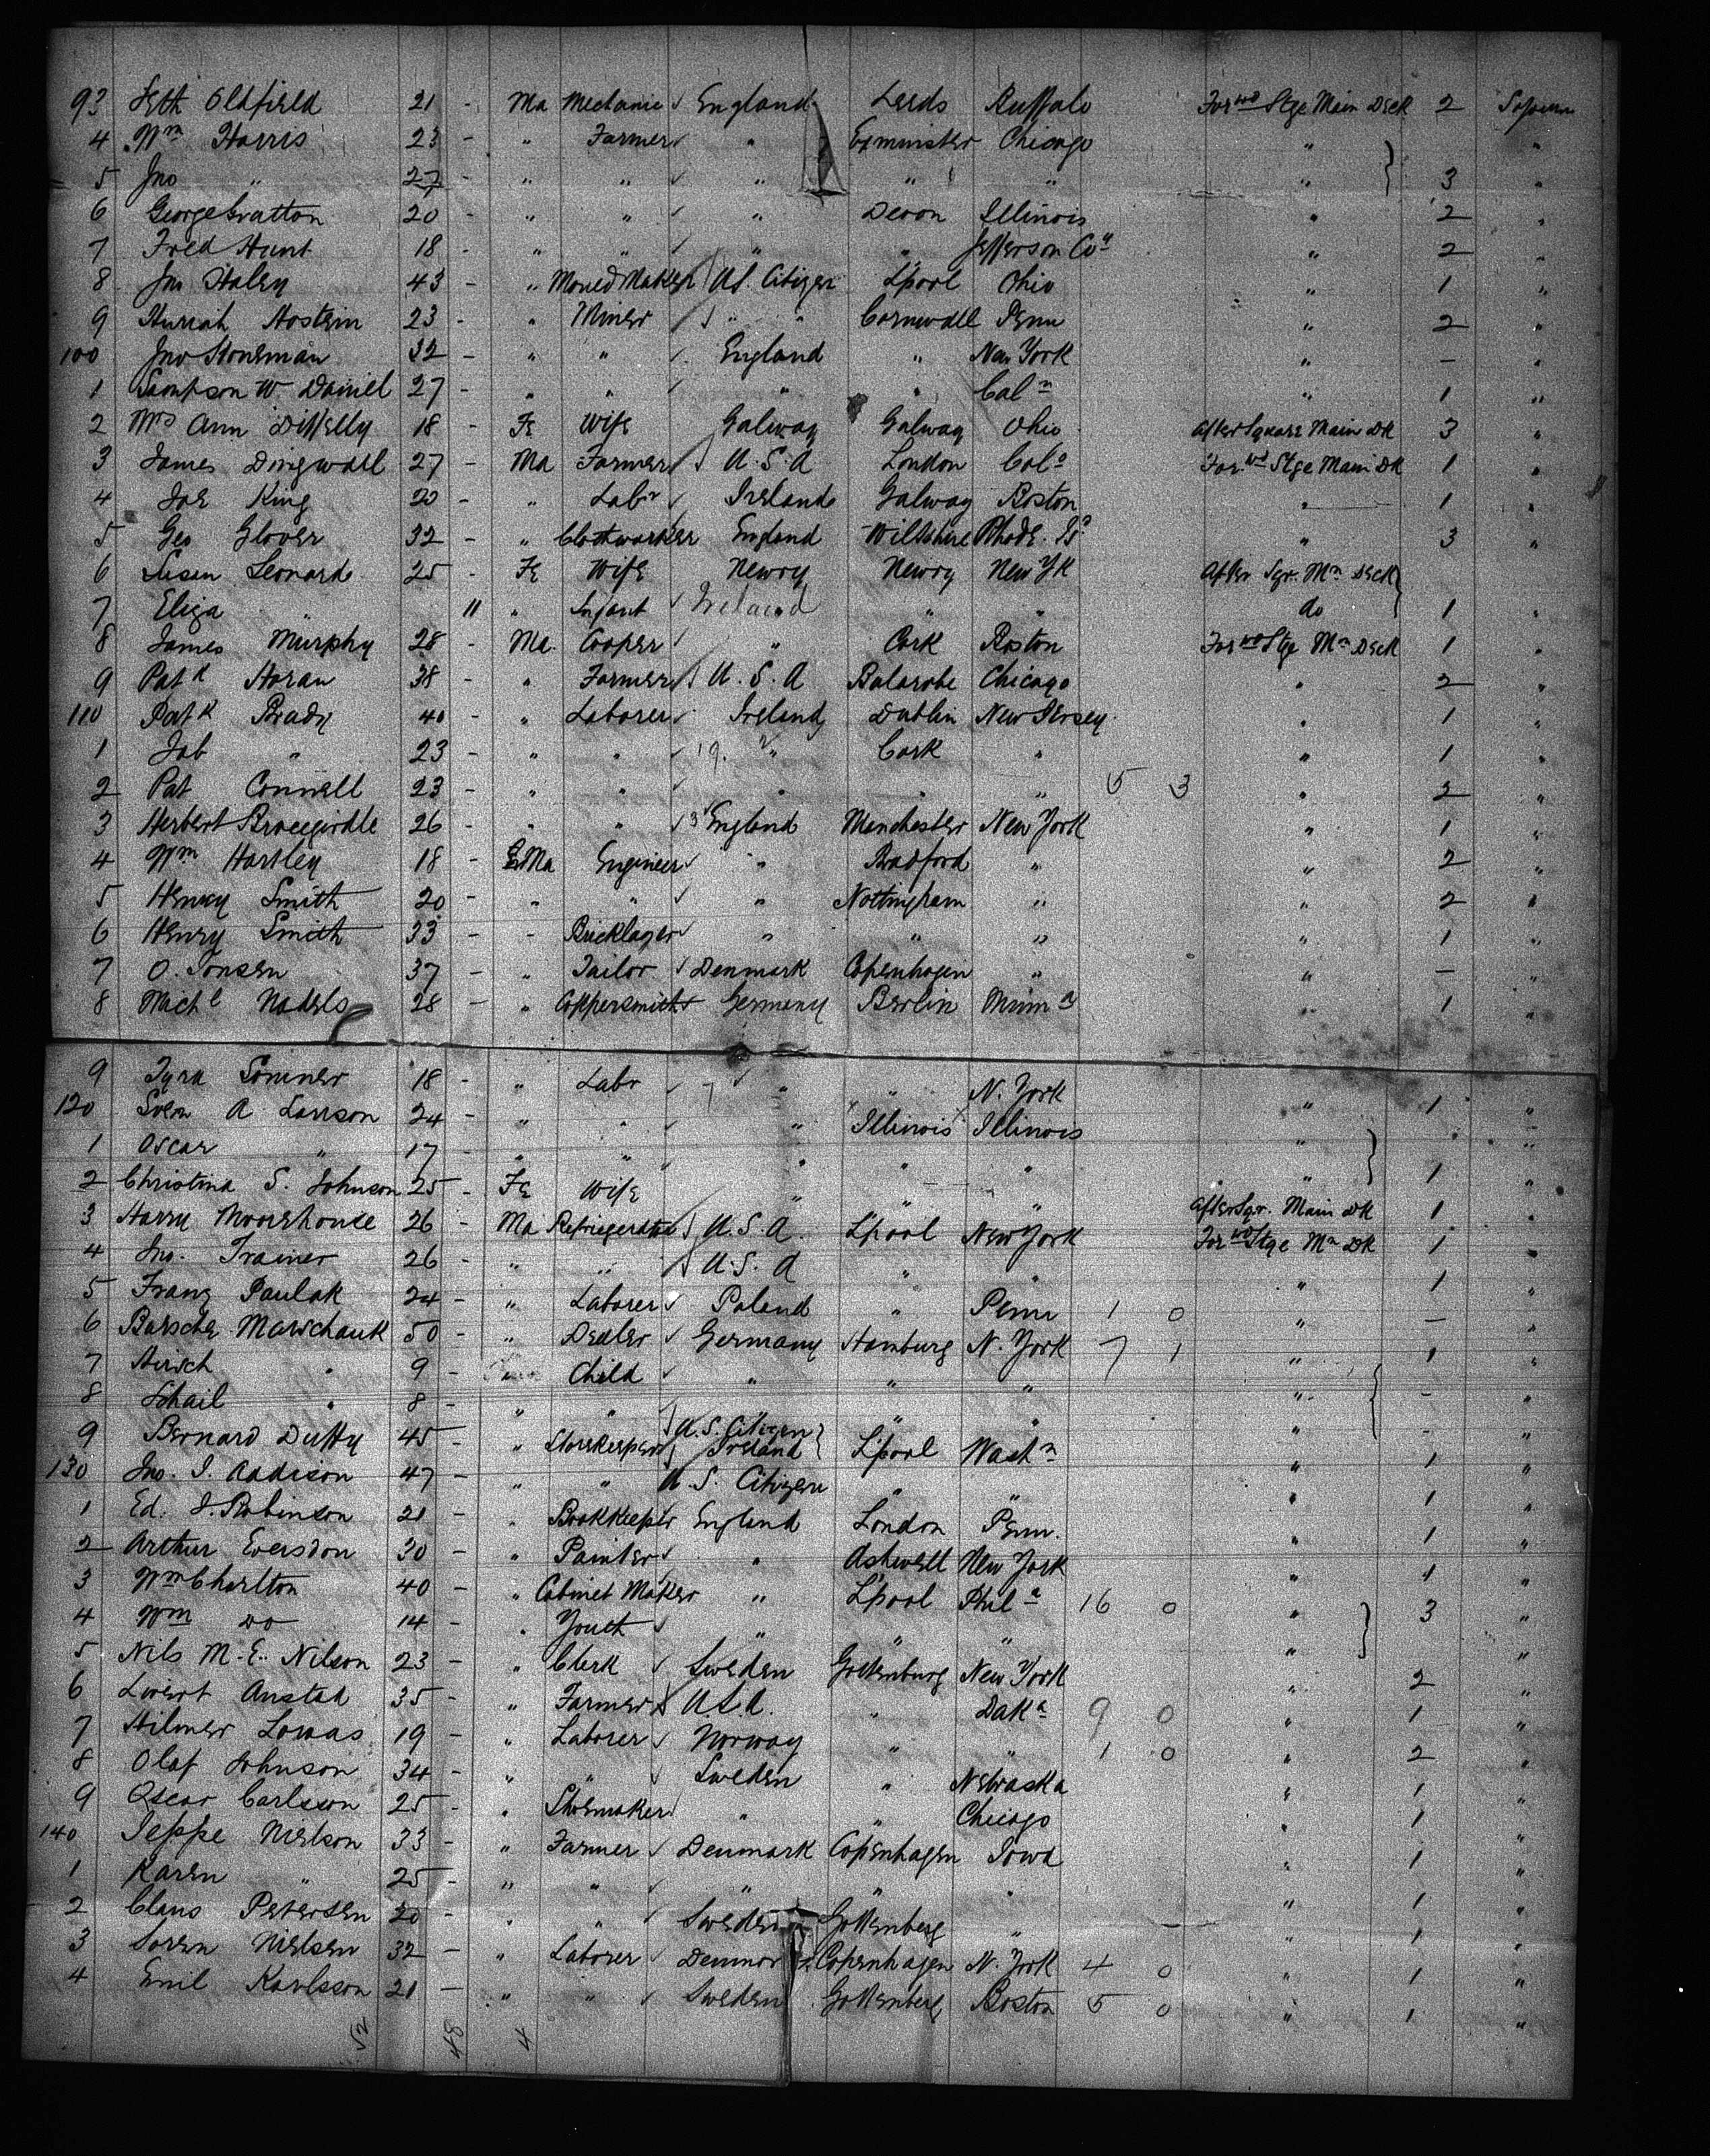 93 Seth Oldfield 21 - Ma Mechanic ✓ England Leeds Buffalo Forwd Stge Main Deck 2 Sojourn
4 Wm Harris 23 - " Farmer ✓ " Exminister Chicago " "
5 Jno " 27 - " " ✓ " " " " } 3 "
6 George Gratton 20 - " " ✓ " Devon Illinois " 2 "
7 Fred Hunt 18 - " " ✓ " " Jefferson Coy " 2 "
8 Jno Haley 43 - " Mould Maker US. Citizen L'pool Ohio " 1 "
9 23 - " Miner ✓ " " Cornwall Penn " 2 "
100 Jno Stoneman 32 - " " ✓ England " New York " - "
1 Sampson W. Daniel 27 - " " ✓ " " Caln " 1 "
2 Mrs Ann 18 - Fe Wife Galway Galway Ohio After Square Main Dk 3 "
3 James Dingwall 27 - Ma Farmer ✓ U.S.A London Cola Forwd Stge Main Dk 1 "
4 Joe King 20 - " Labr ✓ Ireland Galway Boston " 1 "
5 Geo Glover 32 - " Clothworker England Wiltshire Rhode. Isd " 3 "
6 Susan Leonard 25 - Fe Wife Newry Newry New Yk After Sqr. Mn Deck }
7 Eliza " 11 " Infant ✓ Ireland " " do } 1 "
8 James Murphy 28 - Ma. Cooper ✓ " Cork Boston Forwd Stge Mn Deck 1 "
9 Patk Horan 38 - " Farmer ✓ U.S.A Chicago " 2 "
110 Patk Brady 40 - " Laborer ✓ Ireland Dublin New Jersey " 1 "
1 Job " 23 - " " ✓ 19. " Cork " " 1 "
2 Pat Connell 23 - " " ✓ " " " 5 3 " 2 "
3 Herbert Bracegirdle 26 - " " ✓ 3 England Manchester New York " 1 "
4 Wm Hartley 18 - Ma Engineer ✓ " Bradford " " 2 "
5 Henry Smith 20 - " " ✓ " Nottingham " " 2 "
6 Henry Smith 33 - - Bricklayer ✓ " " " " 1 "
7 O. Jonsen 37 - " Tailor ✓ Denmark Copenhagen " " - "
8 Michl Nadels 28 - " Coppersmith ✓ Germany Berlin Minna " 1 "
9 Somner 18 - " Labr ✓ 7 ✓ " " N. York " 1 "
120 Sven A Larson 24 - " " ✓ " Illinois Illinois " "
1 Oscar " 17 - " " ✓ " " " " } 1 "
2 Christina S. Johnson 25 - Fe Wife " " " After Sqr. Main Dk 1 "
3 Harry Moorhouse 26 - Ma Refrigerator U.S.A. L'pool New York Forwd Stge Mn Dk 1 "
4 Jno. Trainer 26 - " " U.S.A " " " 1 "
5 Franz Paulak 24 - " Laborer ✓ Poland " Penn 1 0 " - "
6 Barsche Marschauk 50 - " Dealer ✓ Germany Hamburg N. York 7 1 " 1 "
7 Hirsch " 9 - Child ✓ " " " " { - "
8 " 8 - " " " " " " - "
9 Bernard Duffy 45 - " Storekeeper U.S. Citizen Ireland L'pool Washn " 1 "
130 Jno. J. Addison 47 - " " U.S. Citizen " " " 1 "
1 Ed. J. Robinson 21 - " Bookkeeper England London Penn. " 1 "
2 Arthur Eversdon 30 - " Painter ✓ " Ashwell New York " 1 "
3 Wm Charlton 40 - " Cabinet Maker " L'pool Phila 16 0 " 3 "
4 Wm do 14 - " Youth ✓ " " " " } "
5 Nils M.E. Nilson 23 - " Clerk ✓ Sweden Gottenburg New York " 2 "
6 Anstad 35 - " Farmer U.S.A. " Daka 9 0 " 1 "
7 Hilmer Lowas 19 - " Laborer ✓ Norway " " 1 0 " 2 "
8 Olaf Johnson 34 - " " ✓ Sweden " Nebraska " 1 "
9 Oscar Carlsson 25 - " Shoemaker " " Chicago " 1 "
140 Jeppe Nielson 33 - " Farmer ✓ Denmark Copenhagen Iowa " 1 "
1 Karen " 25 - " " ✓ " " " " 1 "
2 Claus Petersen 20 - " " ✓ Sweden Gottenberg " " 1 "
3 Soren Nielsen 32 - " Laborer ✓ Denmark Copenhagen N. York 4 0 " 1 "
4 Emil Karlsson 21 - " " ✓ Sweden Gottenberg Boston 5 0 " 1 "
52 48 4